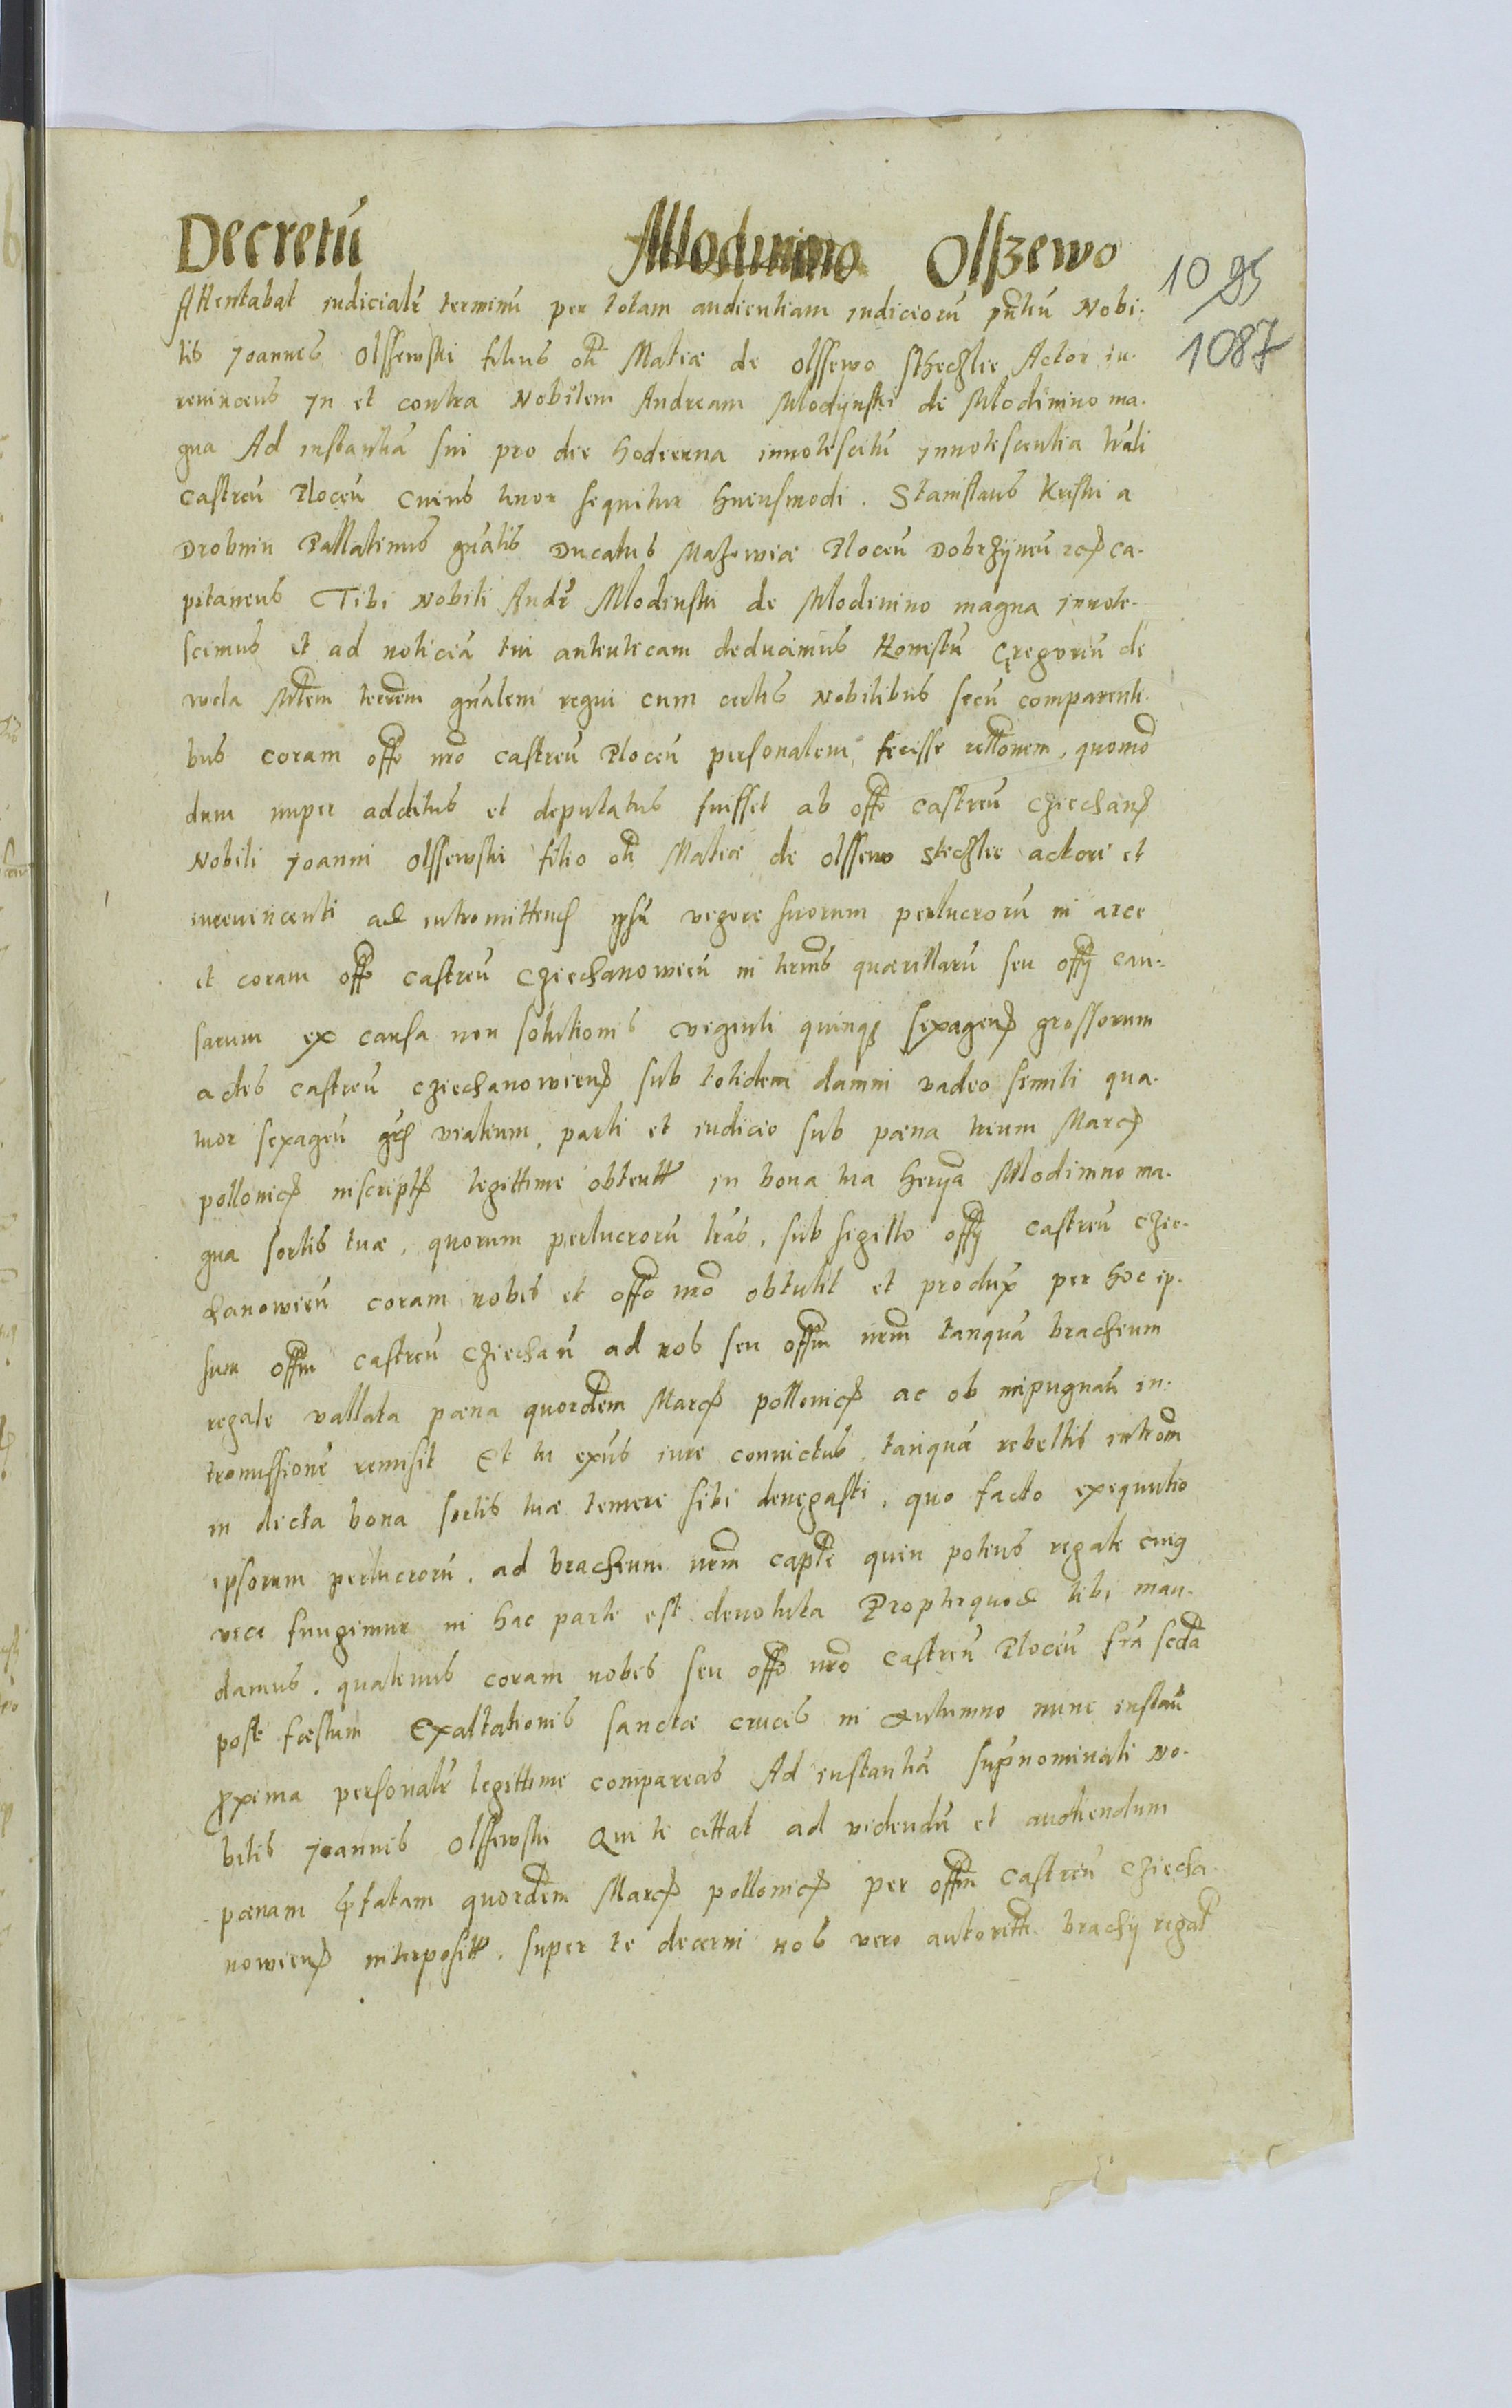 Decretū Mlodinino Olszewo
1095
1087
Attentabat iudicialr̄ terminū per totam audientiam iudiciorū pn̄tiū Nobi-
lis Joannes Olssewski filius oli Matiæ de olssewo Stheczlie Actor iu-
reuincens Jn et contra Nobilem Andream Mlodijnski de Mlodinino ma-
gna Ad instantiā sui pro die hodierna innotescitū Jnnotescentia lr̄ali
castreń Ploceń Cuius tenor sequitur huiusmodi. Stanislaus Kriski a
Drobnin Pallatinus gn̄alis Ducatus Mazowiæ Ploceń Dobrzijneń zc̃ ca-
pitaneus Tibi Nobili Andr̄ Mlodinski de Mlodinino magna innote-
scimus et ad noticiā tui autenticam deducimus Honestū Gregoriū de
Mlem terrem gn̄alem regni cum certis Nobilibus secū comparenti-
bus coram offo nro castreń Ploceń personalem fecisse rellonem, quomo
dum nuper additus et deputatus fuisset ab offo castreń Cziechanꝭ
Nobili Joanni Olssewski filio oli Matiæ de olssewo Stechlie actori et
iureuincenti ad intromittend ipsū vigore suorum perlucrorū in arce
et coram offo castreń Cziechanowień in termis quærillarū seu offij cau-
sarum ex causa non solutionis viginti quinqꝫ sexagenꝭ grossorum
actis castreń Cziechanowienꝭ sub totidem damni vadio simili qua-
tuor sexageń gr̄ viatium, parti et iudicio sub pæna trium Marcꝭ
pollonicꝭ inscriptꝭ legittime obtent̄ in bona tua herija Mlodinino ma-
gna sortis tuæ, quorum perlucrorū lr̄as, sub sigillo offij castreń Czie-
chanowień coram nobis et offo nro obtulit et produx per hoc ip-
sum offm castreń Cziechań ad nos seu offm nrm tanquā brachium
regale vallata pæna quordem Marcꝭ pollonicꝭ ac ob inpugnań in-
tromissionē remisit Et tu exn̄s iure conuictus, tanquā rebellis introm
in dicta bona sortis tuæ temere sibi denegasti, quo facto exequutio
ipsorum perlucrorū, ad brachium nrm captle quin potius regale cuiꝯ
vice fungimur in hac parte est deuoluta Propterquod tibi man-
damus, quatenus coram nobis seu offo nro Castreń Ploceń fr̄ia sc̄da
post fæstum Exaltationis sanctæ crucis in Autumno nunc instań
proxima personalr̄ legittime compareas Ad instantiā supnominati No-
bilis Joannis Olssewski Qui te cittat ad videndū et audiendum
pænam prefatam quordem Marcꝭ pollonicꝭ per offm Castreń Cziecha-
nowienꝭ interposit̄, super te decerni nos vero autoritte brachij regal